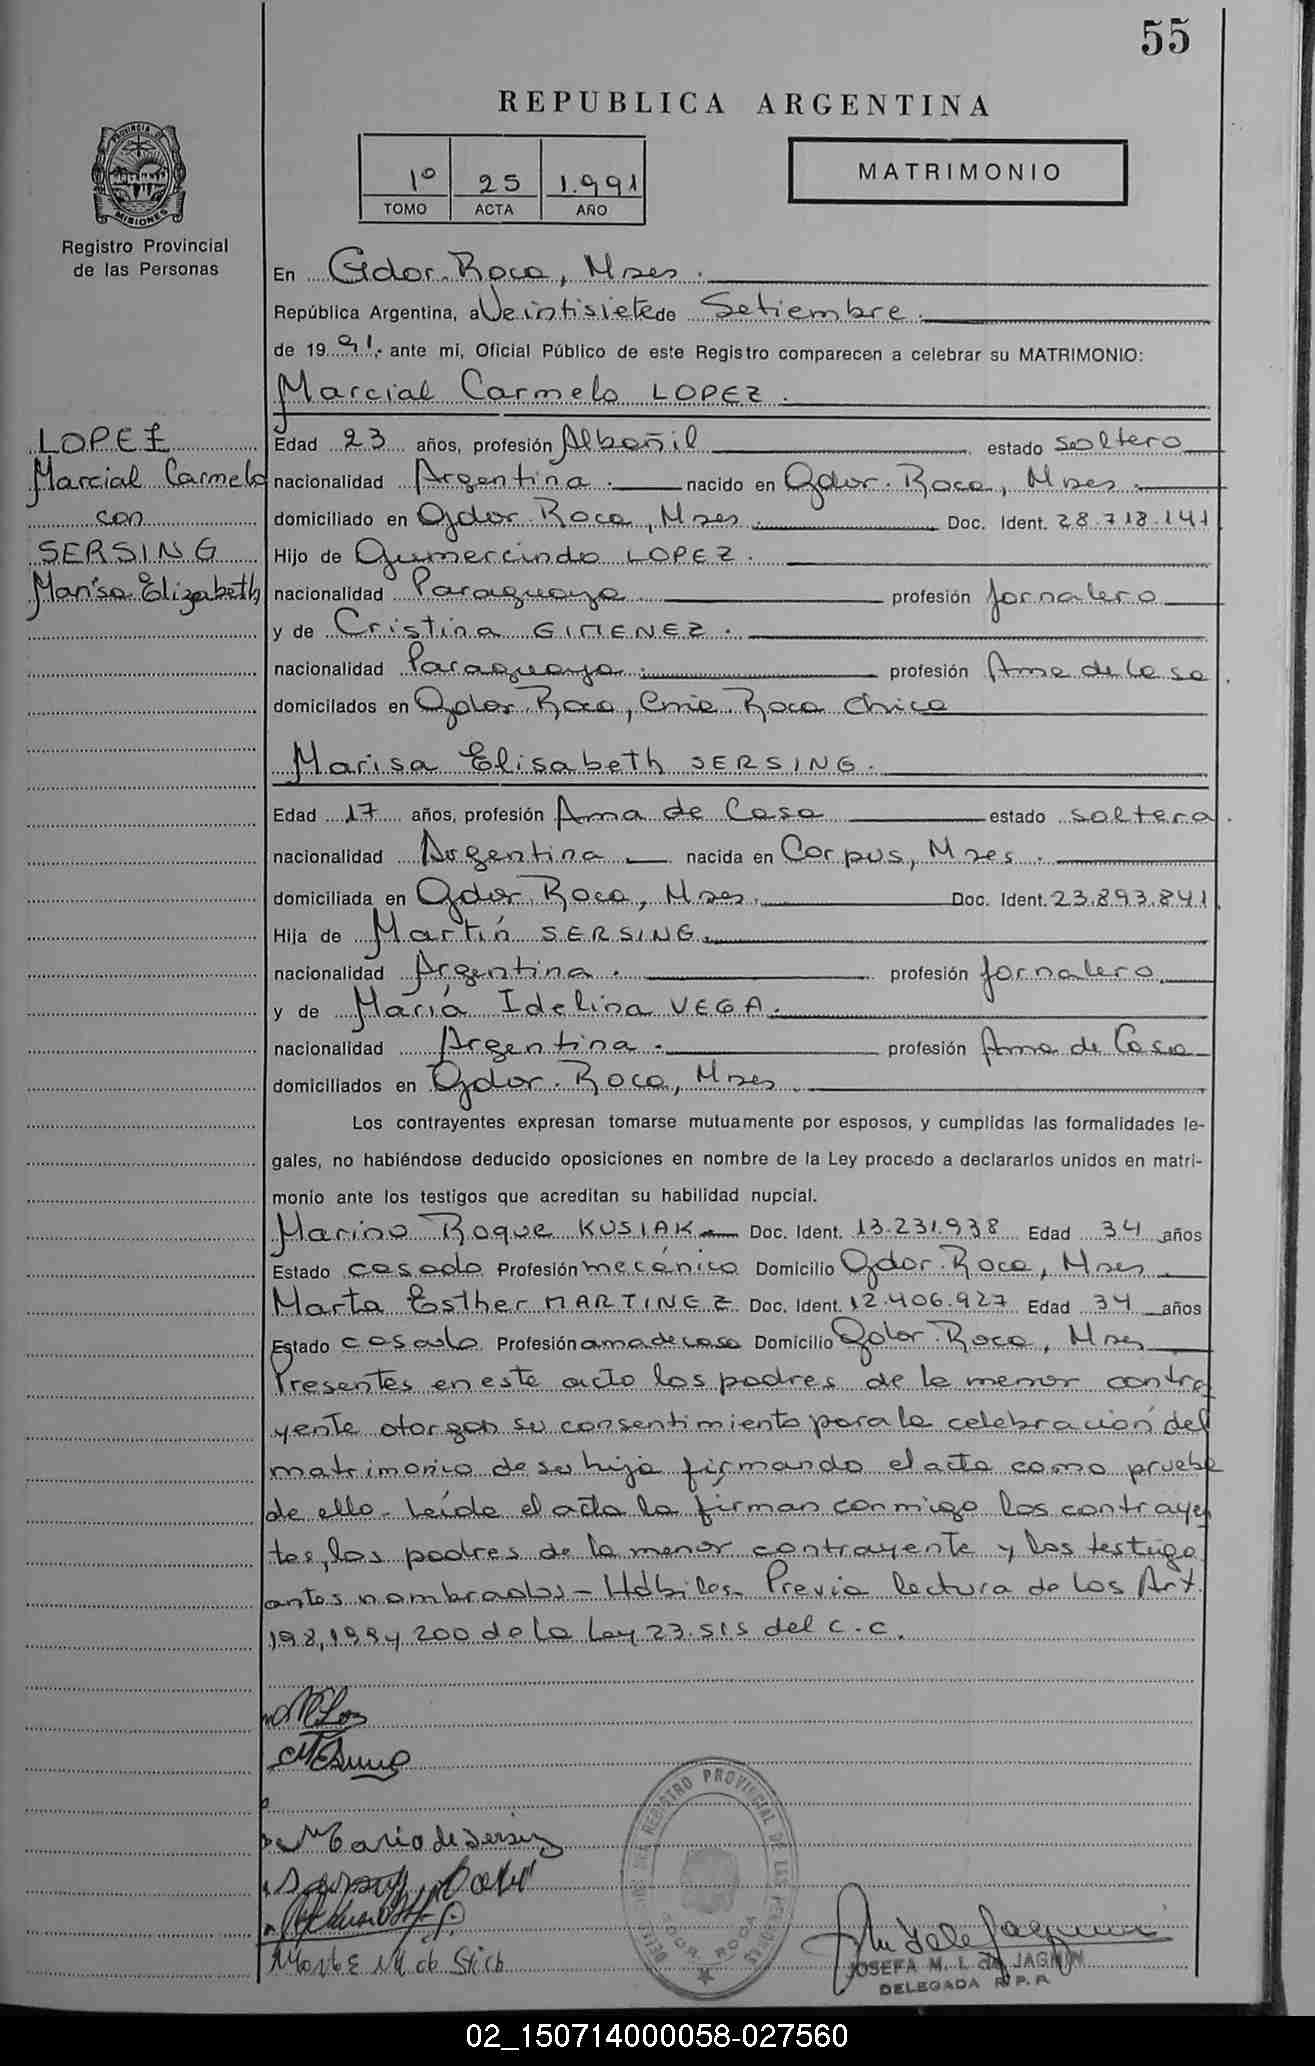 55
REPUBLICA ARGENTINA
PROVINCIA DE MISIONES
Registro Provincial
de las Personas
1º 25 1.991
TOMO ACTA AÑO
MATRIMONIO
En Gdor. Roca, Mnes.
República Argentina, a Veintisiete de Setiembre.
de 19 91. ante mi, Oficial Público de este Registro comparecen a celebrar su MATRIMONIO:
Marcial Carmelo LOPEZ.
LOPEZ
Marcial Carmelo
con
SERSING
Marisa Elizabeth
Edad 23 años, profesión Albañil estado soltero
nacionalidad Argentina. nacido en Gdor. Roca, Mnes.
domiciliado en Gdor. Roca, Mnes. Doc. Ident. 28.718.141
Hijo de Gumercindo LOPEZ.
nacionalidad Paraguaya profesión Jornalero
y de Cristina GIMENEZ.
nacionalidad Paraguaya. profesión Ama de Casa.
domicilados en Gdor. Roca, Cnia. Roca Chica
Marisa Elisabeth SERSING.
Edad 17 años, profesión Ama de Casa estado soltera.
nacionalidad Argentina nacida en Corpus, Mnes.
domiciliada en Gdor. Roca, Mnes. Doc. Ident. 23.893.841
Hija de Martín SERSING.
nacionalidad Argentina. profesión Jornalero
y de María Idelina VEGA.
nacionalidad Argentina. profesión Ama de Casa
domiciliados en Gdor. Roca, Mnes.
Los contrayentes expresan tomarse mutuamente por esposos, y cumplidas las formalidades le-
gales, no habiéndose deducido oposiciones en nombre de la Ley procedo a declararlos unidos en matri-
monio ante los testigos que acreditan su habilidad nupcial.
Marino Roque KUSIAK Doc. Ident. 13.231.938 Edad 34 años
Estado casado Profesión mecánico Domicilio Gdor. Roca, Mnes.
Marta Esther MARTINEZ Doc. Ident. 12.406.927 Edad 34 años
Estado casada Profesión ama de casa Domicilio Gdor. Roca, Mnes
Presentes en este acto los padres de la menor contra
yente otorgan su consentimiento para la celebración del
matrimonio de su hija firmando el acta como prueba
de ello. Leída el acta la firman conmigo los contrayen
tes, los padres de la menor contrayente y los testigo
antes nombrados - Hábiles. Previa lectura de los Art.
198, 199 y 200 de la Ley 23.515 del c.c.
Maria de Sersing
REGISTRO PROVINCIAL DE LAS PERSONAS
GDOR. ROCA
JOSEFA M. L. de JAGNIN
DELEGADA R.P.P.
02_150714000058-027560